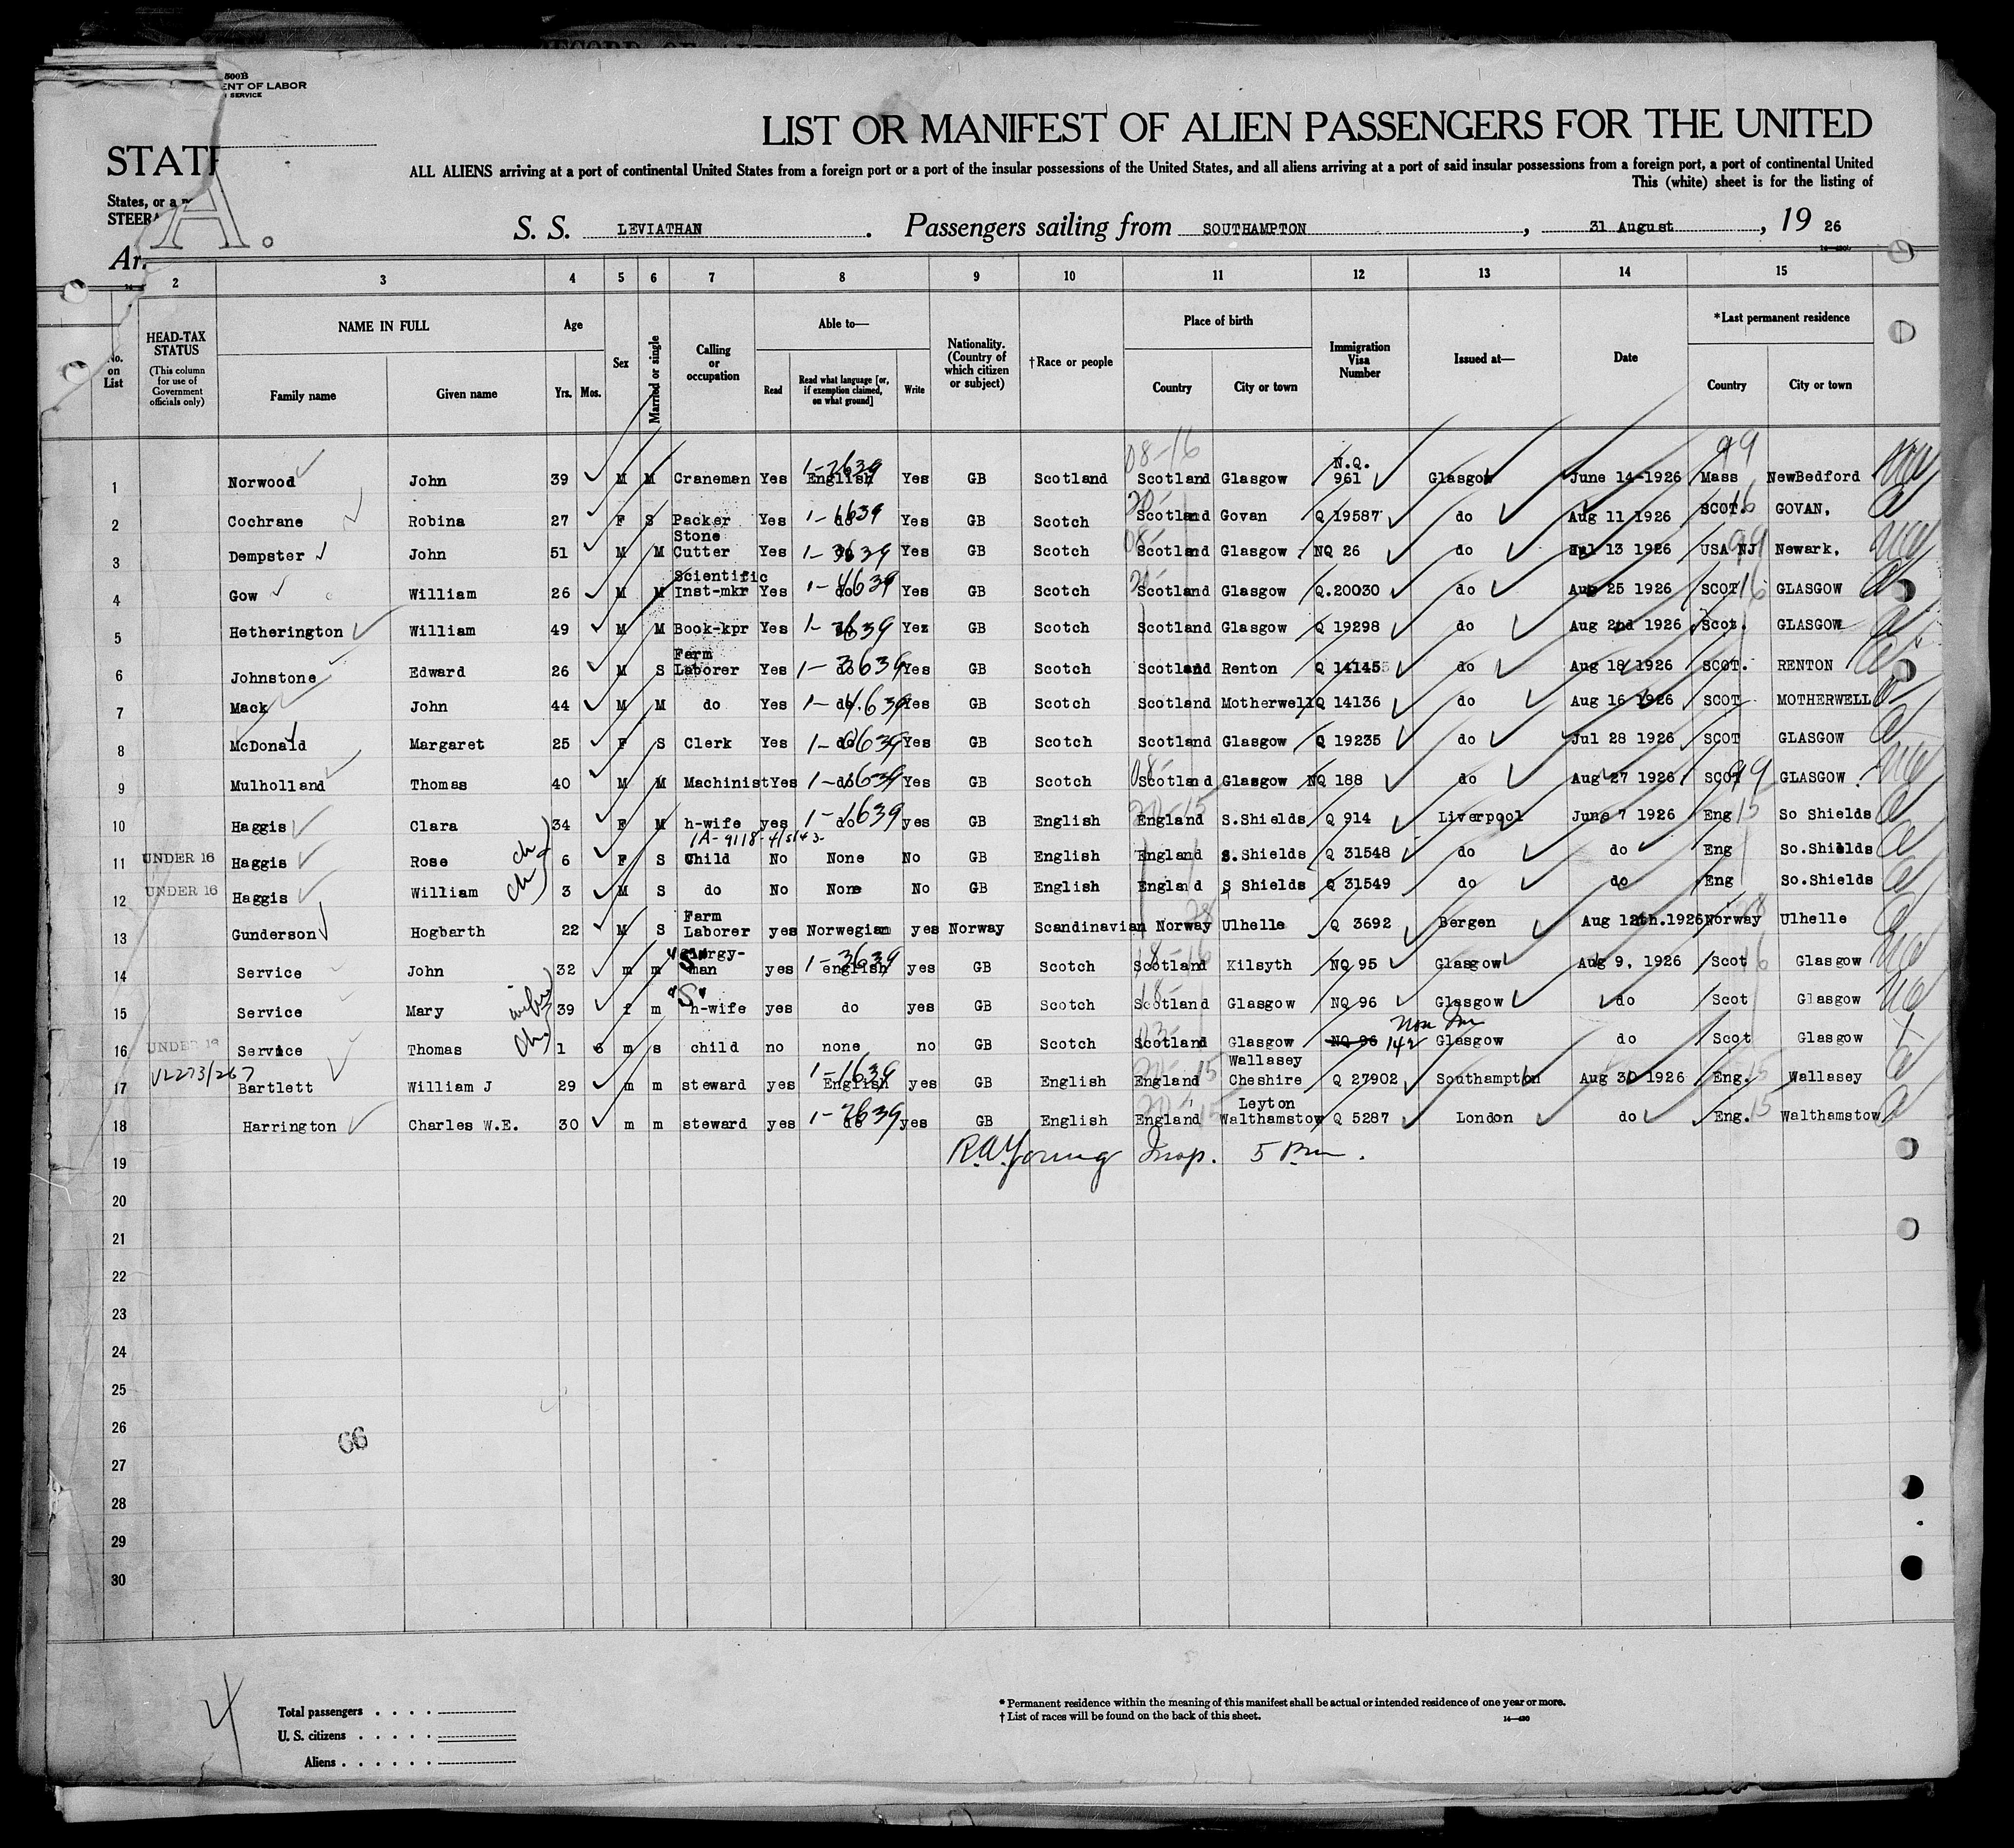 500B
ENT OF LABOR
SERVICE
LIST OR MANIFEST OF ALIEN PASSENGERS FOR THE UNITED
STATE
ALL ALIENS arriving at a port of continental United States from a foreign port or a port of the insular possessions of the United States, and all aliens arriving at a port of said insular possessions from a foreign port, a port of continental United
States, or a
This (white) sheet is for the listing of
STEERA
A.
S. S. LEVIATHAN. Passengers sailing from SOUTHAMPTON, 31 August, 19 26
Ar
2 3 4 5 6 7 8 9 10 11 12 13 14 15
No. on List
HEAD-TAX STATUS (This column for use of Government officials only)
NAME IN FULL Family name Given name
Age Yrs. Mos.
Sex
Married or single
Calling or occupation
Able to— Read Read what language [or, if exemption claimed, on what ground] Write
Nationality. (Country of which citizen or subject)
†Race or people
Place of birth Country City or town
Immigration Visa Number
Issued at—
Date
*Last permanent residence Country City or town
1 Norwood John 39 M M Craneman Yes English 1-2639 Yes GB Scotland 08-16 Scotland Glasgow N.Q. 961 Glasgow June 14-1926 99 Mass NewBedford
2 Cochrane Robina 27 F S Packer Yes do 1-1639 Yes GB Scotch Scotland Govan Q 19587 do Aug 11 1926 SCOT. 16 GOVAN.
3 Dempster John 51 M M Stone Cutter Yes do 1-3639 Yes GB Scotch 08- Scotland Glasgow. NQ 26 do Jul 13 1926 USA NJ 99 Newark.
4 Gow William 26 M M Scientific Inst-mkr Yes do 1-4639 Yes GB Scotch Scotland Glasgow Q.20030 do Aug 25 1926 SCOT 16 GLASGOW
5 Hetherington William 49 M M Book-kpr Yes 1-3639 Yes GB Scotch Scotland Glasgow Q 19298 do Aug 2nd 1926 Scot. GLASGOW
6 Johnstone Edward 26 M S Farm Laborer Yes do 1-3639 Yes GB Scotch Scotland Renton Q 14145 do Aug 18 1926 SCOT. RENTON
7 Mack John 44 M M do Yes do 1-4639 Yes GB Scotch Scotland Motherwell Q 14136 do Aug 16 1926 SCOT MOTHERWELL
8 McDonald Margaret 25 F S Clerk Yes do Yes GB Scotch Scotland Glasgow Q 19235 do Jul 28 1926 SCOT GLASGOW
9 Mulholland Thomas 40 M M Machinist Yes do 1-1639 Yes GB Scotch 08- Scotland Glasgow NQ 188 do Aug 27 1926 SCOT 99 GLASGOW.
10 Haggis Clara 34 F M h-wife yes do 1-1639 yes GB English 20-15 England S.Shields Q 914 Liverpool June 7 1926 Eng 15 So Shields
11 UNDER 16 Haggis Rose ch 6 F S Child No None No GB English England S.Shields Q 31548 do do Eng So.Shields
12 UNDER 16 Haggis William ch 3 M S do No None No GB English England S Shields Q 31549 do do Eng So.Shields
13 Gunderson Hogbarth 22 M S Farm Laborer yes Norwegian yes Norway Scandinavian Norway 28 Ulhelle Q 3692 Bergen Aug 12th.1926 Norway 28 Ulhelle
14 Service John 32 m m "S" Clergy-man yes english 1-3639 yes GB Scotch 18-16 Scotland Kilsyth NQ 95 Glasgow Aug 9, 1926 Scot 16 Glasgow
15 Service Mary wife 39 f m "S" h-wife yes do yes GB Scotch 18- Scotland Glasgow NQ 96 Glasgow do Scot Glasgow
16 UNDER 16 Service Thomas ch 1 6 m s child no none no GB Scotch 03- Scotland Glasgow NQ 96 142 Non Im Glasgow do Scot Glasgow
17 VL273/267 Bartlett William J 29 m m steward yes English 1-1639 yes GB English 20-15 England Wallasey Cheshire Q 27902 Southampton Aug 30 1926 Eng. 15 Wallasey
18 Harrington Charles W.E. 30 m m steward yes do 1-2639 yes GB English 20-15 England Leyton Walthamstow Q 5287 London do Eng. 15 Walthamstow
19 R.A. Young Insp. 5 Pm.
20
21
22
23
24
25
26
66
27
28
29
30
4
Total passengers
U. S. citizens
Aliens
* Permanent residence within the meaning of this manifest shall be actual or intended residence of one year or more.
† List of races will be found on the back of this sheet.
14—430